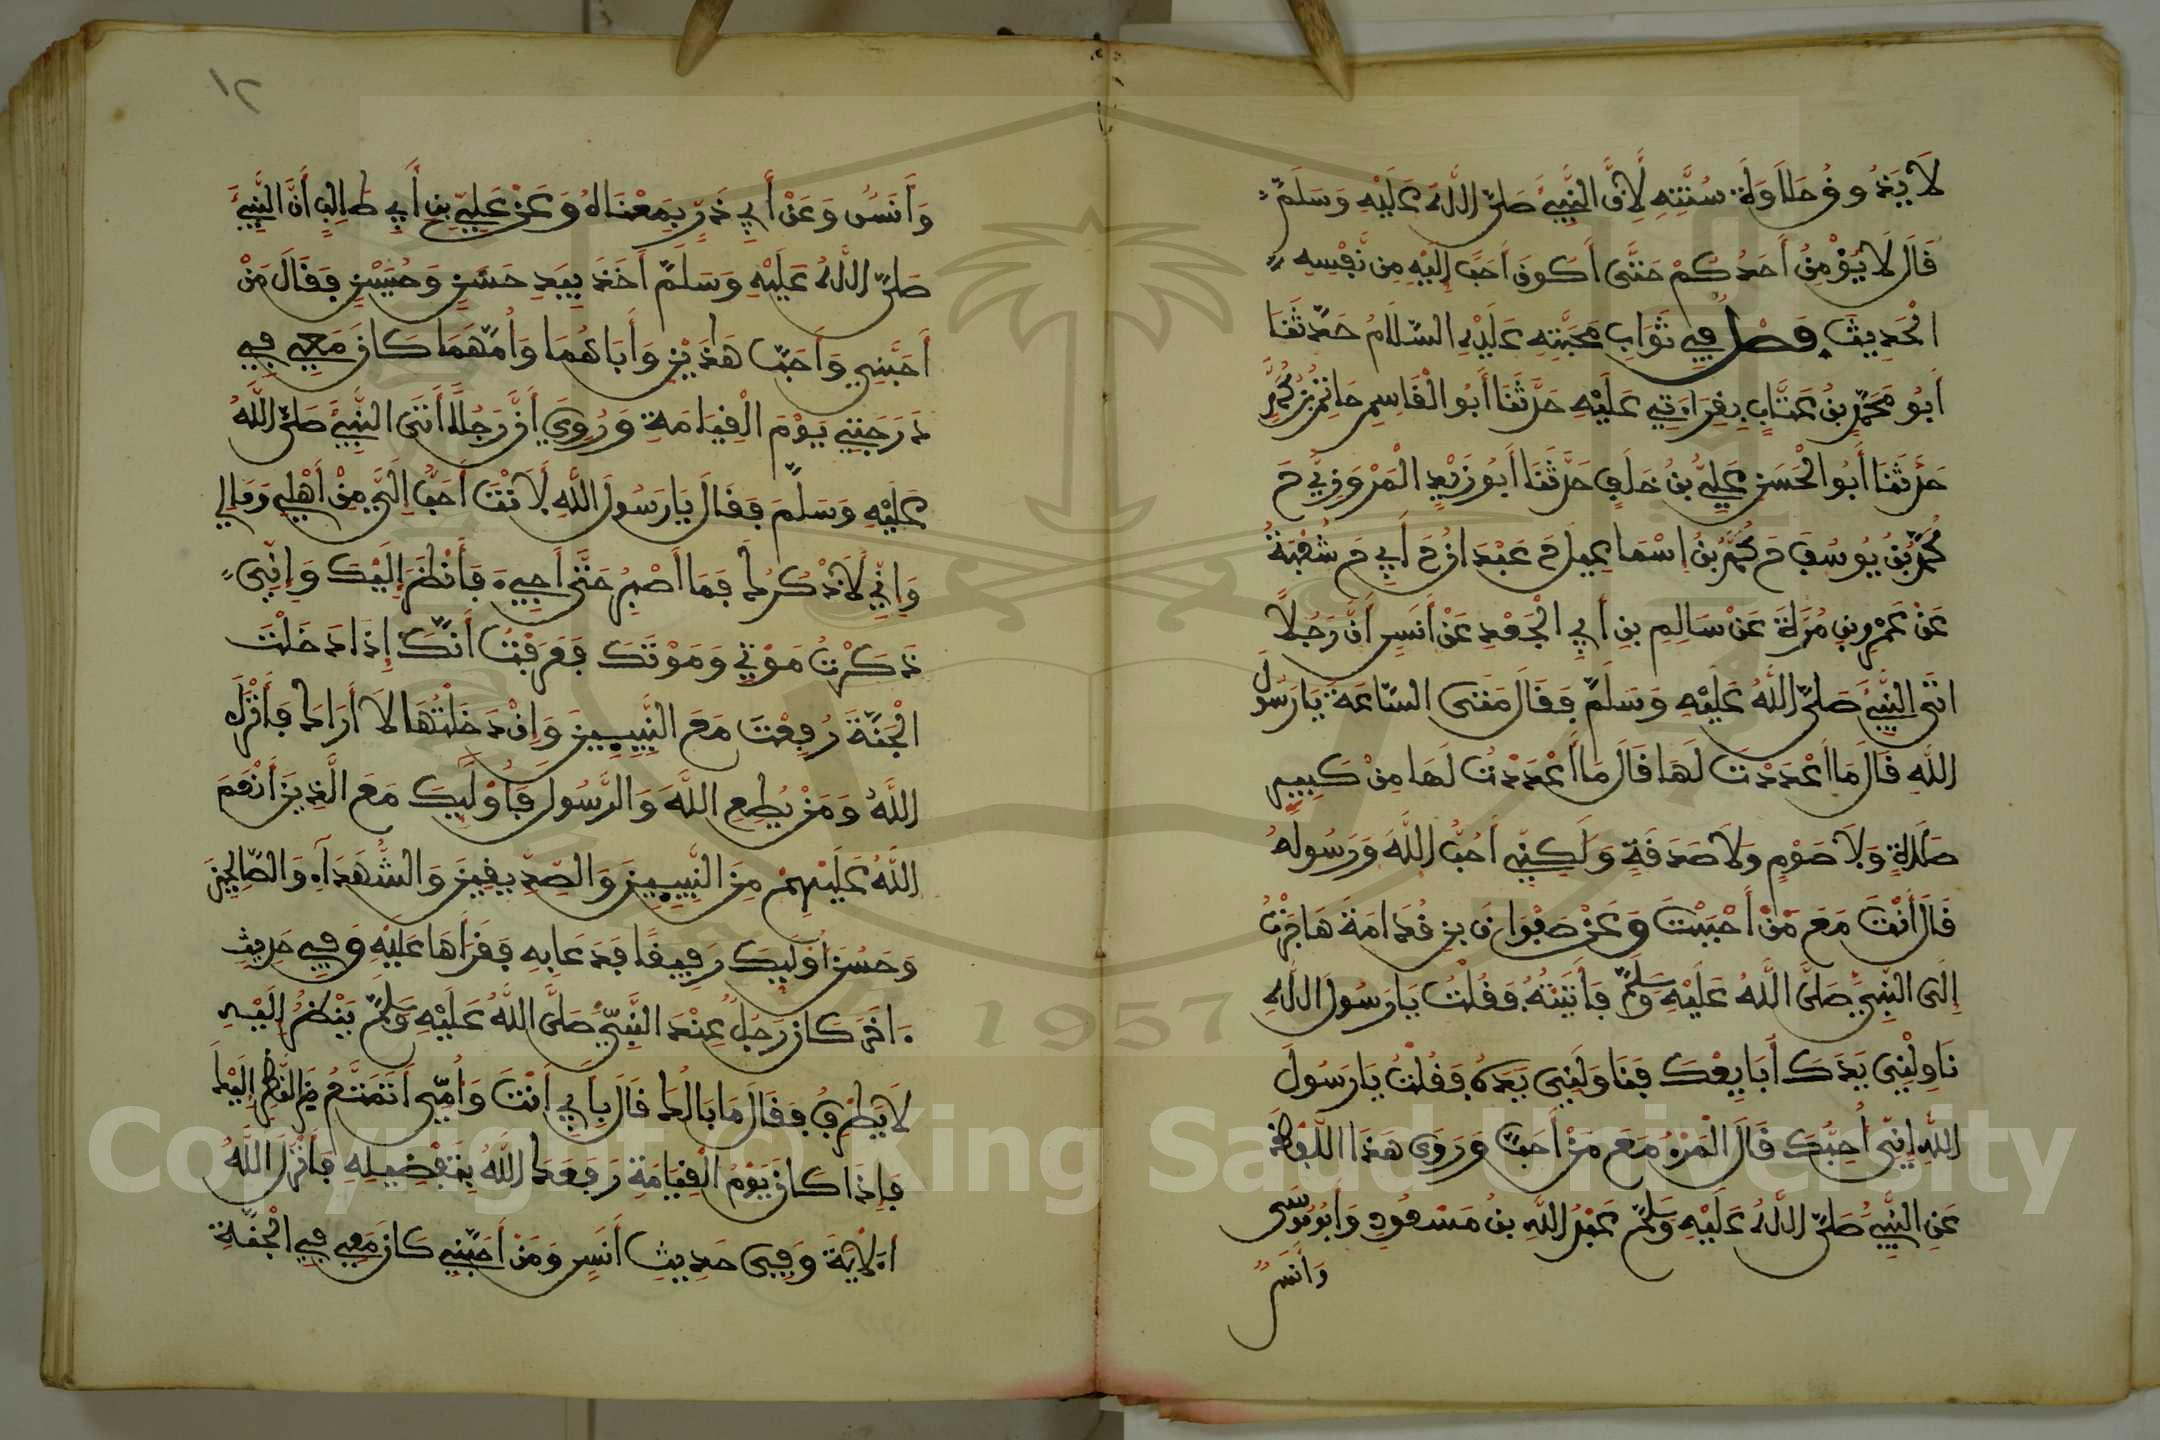 لَا يَذُوقُ حَلَاوَةَ سُنَّتِهِ لِأَنَّ النَّبِيَّ صَلَّى اللَّهُ عَلَيْهِ وَسَلَّمَ
قَالَ لَا يُؤْمِنُ أَحَدُكُمْ حَتَّى أَكُونَ أَحَبَّ إِلَيْهِ مِن نَّفْسِهِ
الْحَدِيثَ فَصْلٌ فِي ثَوَابِ مَحَبَّتِهِ عَلَيْهِ السَّلَامُ حَدَّثَنَا
أَبُو مُحَمَّدِ بْنُ عَتَّابٍ بِقِرَاءَتِي عَلَيْهِ حَدَّثَنَا أَبُو الْقَاسِمِ حَاتِمُ بْنُ مُحَمَّدٍ
حَدَّثَنَا أَبُو الْحَسَنِ عَلِيُّ بْنُ خَلَفٍ حَدَّثَنَا أَبُو زَيْدٍ الْمَرْوَزِيُّ حَ
مُحَمَّدُ بْنُ يُوسُفَ حَ مُحَمَّدُ بْنُ إِسْمَاعِيلَ حَ عَبْدَانُ حَ أَبِي حَ شُعْبَةُ
عَنْ عَمْرِو بْنِ مُرَّةَ عَنْ سَالِمِ بْنِ أَبِي الْجَعْدِ عَنْ أَنَسٍ أَنَّ رَجُلًا
اتَى النَّبِيَّ صَلَّى اللَّهُ عَلَيْهِ وَسَلَّمَ فَقَالَ مَتَى السَّاعَةُ يَا رَسُولَ
اللَّهِ قَالَ مَا أَعْدَدْتَ لَهَا قَالَ مَا أَعْدَدْتُ لَهَا مِنْ كَبِيرِ
صَلَاةٍ وَلَا صَوْمٍ وَلَا صَدَقَةٍ وَلَكِنِّي أُحِبُّ اللَّهَ وَرَسُولَهُ
قَالَ أَنْتَ مَعَ مَنْ أَحْبَبْتَ وَعَنْ صَفْوَانَ بْنِ قُدَامَةَ هَاجَرْتُ
إِلَى النَّبِيِّ صَلَّى اللَّهُ عَلَيْهِ وَسَلَّمَ فَأَتَيْتُهُ فَقُلْتُ يَا رَسُولَ اللَّهِ
نَاوِلْنِي يَدَكَ أُبَايِعْكَ فَنَاوَلَنِي يَدَهُ فَقُلْتُ يَا رَسُولَ
اللَّهِ إِنِّي أُحِبُّكَ قَالَ الْمَرْءُ مَعَ مَنْ أَحَبَّ وَرَوَى هَذَا اللَّفْظَ
عَنِ النَّبِيِّ صَلَّى اللَّهُ عَلَيْهِ وَسَلَّمَ عَبْدُ اللَّهِ بْنُ مَسْعُودٍ وَأَبُو مُوسَى
وَأَنَسٌ
١٢
وَأَنَسٌ وَعَنْ أَبِي ذَرٍّ بِمَعْنَاهُ وَعَنْ عَلِيِّ بْنِ أَبِي طَالِبٍ أَنَّ النَّبِيَّ
صَلَّى اللَّهُ عَلَيْهِ وَسَلَّمَ أَخَذَ بِيَدِ حَسَنٍ وَحُسَيْنٍ فَقَالَ مَنْ
أَحَبَّنِي وَأَحَبَّ هَذَيْنِ وَأَبَاهُمَا وَأُمَّهُمَا كَانَ مَعِي فِي
دَرَجَتِي يَوْمَ الْقِيَامَةِ وَرُوِيَ أَنَّ رَجُلًا أَتَى النَّبِيَّ صَلَّى اللَّهُ
عَلَيْهِ وَسَلَّمَ فَقَالَ يَا رَسُولَ اللَّهِ لَأَنْتَ أَحَبُّ إِلَيَّ مِنْ أَهْلِي وَمَالِي
وَإِنِّي لَأَذْكُرُكَ فَمَا أَصْبِرُ حَتَّى أَجِيءَ فَأَنْظُرَ إِلَيْكَ وَإِنِّي
ذَكَرْتُ مَوْتِي وَمَوْتَكَ فَعَرَفْتُ أَنَّكَ إِذَا دَخَلْتَ
الْجَنَّةَ رُفِعْتَ مَعَ النَّبِيِّينَ وَإِنْ دَخَلْتُهَا لَا أَرَاكَ فَأَنْزَلَ
اللَّهُ وَمَنْ يُطِعِ اللَّهَ وَالرَّسُولَ فَأُوْلَئِكَ مَعَ الَّذِينَ أَنْعَمَ
اللَّهُ عَلَيْهِمْ مِنَ النَّبِيِّينَ وَالصِّدِّيقِينَ وَالشُّهَدَاءِ وَالصَّالِحِينَ
وَحَسُنَ أُوْلَئِكَ رَفِيقًا فَدَعَا بِهِ فَقَرَأَهَا عَلَيْهِ وَفِي حَدِيثٍ
ءَاخَرَ كَانَ رَجُلٌ عِنْدَ النَّبِيِّ صَلَّى اللَّهُ عَلَيْهِ وَسَلَّمَ يَنْظُرُ إِلَيْهِ
لَا يَطْرِفُ فَقَالَ مَا بَالُكَ قَالَ بِأَبِي أَنْتَ وَأُمِّي أَتَمَتَّعُ مِنَ النَّظَرِ إِلَيْكَ
فَإِذَا كَانَ يَوْمُ الْقِيَامَةِ رَفَعَكَ اللَّهُ بِتَفْضِيلِهِ فَأَنْزَلَ اللَّهُ
الْآيَةَ وَفِي حَدِيثِ أَنَسٍ وَمَنْ أَحَبَّنِي كَانَ مَعِي فِي الْجَنَّةِ
1957
Copyright © King Saud University